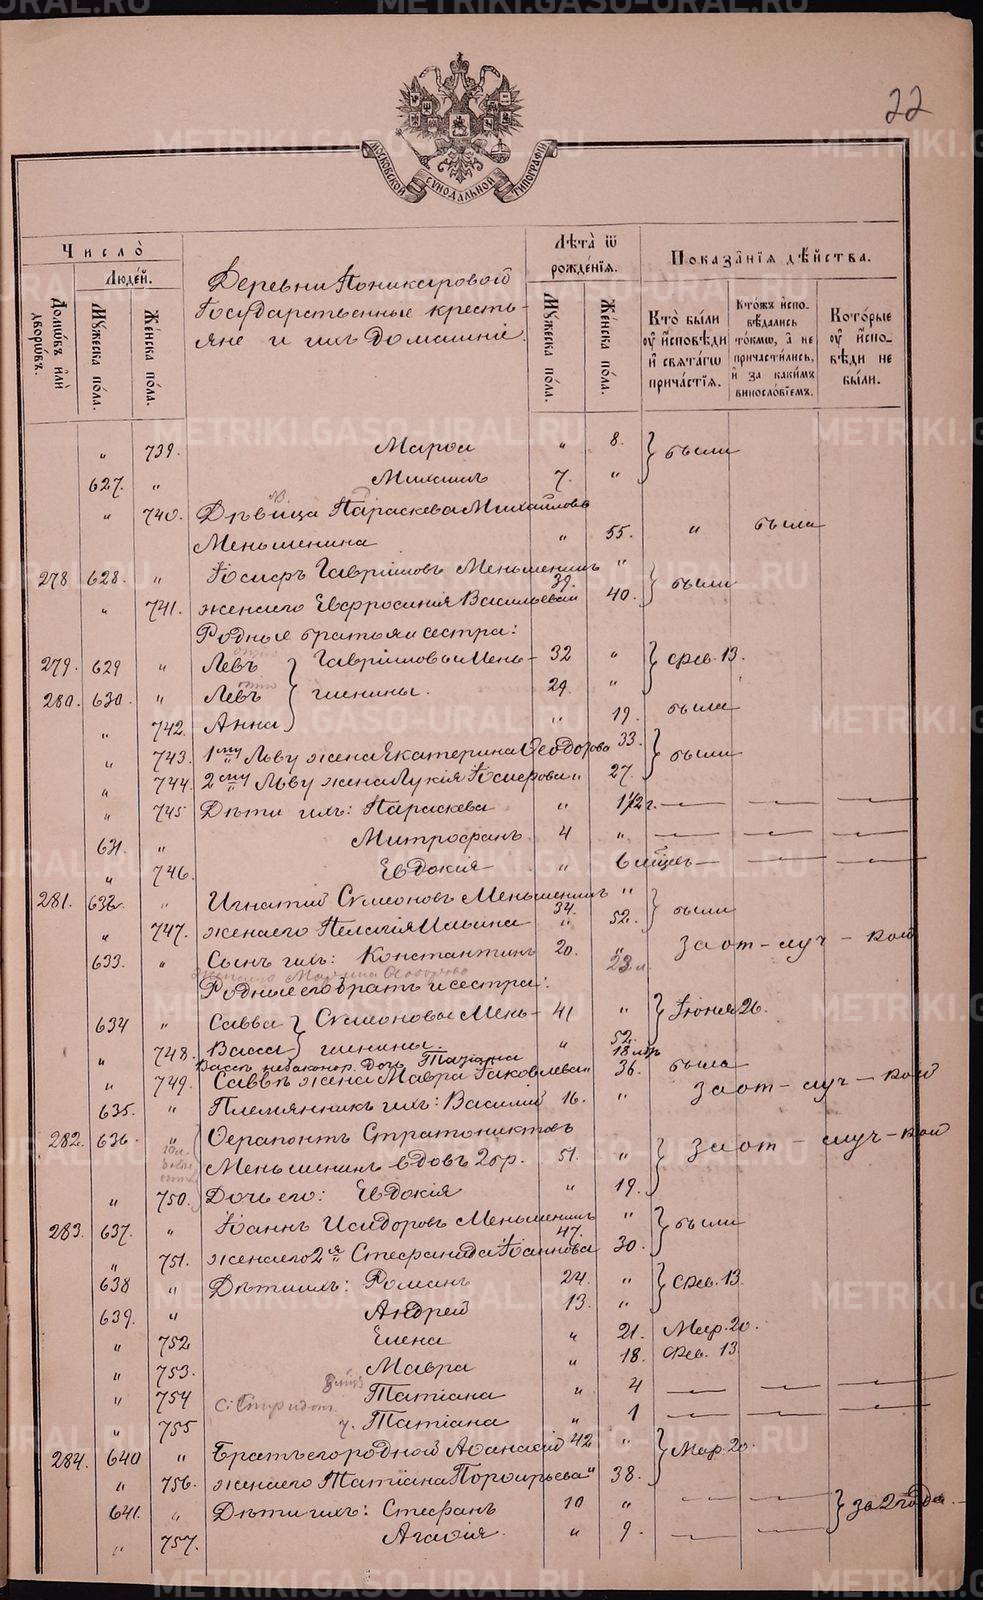 22
МОСКОВСКОЙ СѴНОДАЛЬНОЙ ТИПОГРАФІИ
Число̀
Людей.
Домѡвъ или дворѡвъ.
Мꙋжеска пола.
Женска пола.
Деревни Поникаровой
Государственные кресть-
яне и ихъ домашніе.
Лѣта ѿ рожденїѧ.
Мꙋжеска пола.
Женска пола.
Показанїѧ дѣйства.
Кто были оу исповѣди и свѧтагѡ причастїѧ.
Ктожъ исповѣдались токмѡ, а не причастились, и за какимъ винословїемъ.
Которые оу исповѣди не были.
" 739. Марѳа " 8. были
627. " Михаилъ 7. "
" 740. Дѣвица Параскева Михайлова
Меньшенина " 55. " была
278 628. " Іосифъ Гавріиловъ Меньшенинъ 39. "
" 741. жена его Евфросинія Васильева 40. были
Родные братья и сестра:
279. 629 " Левъ Гавріиловы Мень- 32 " Фев. 13.
280. 630. " Левъ шенины. 29. "
" 742. Анна " 19. была
" 743. 1му Льву жена Екатерина Ѳеодорова 33. были
" 744. 2му Льву жена Лукія Іосифова " 27.
" 745 Дѣти ихъ: Параскева " 1 1/2 г.
631. " Митрофанъ 4 "
" 746. Евдокія " 6 мѣсев
281. 632. " Игнатій Сѵмеоновъ Меньшенинъ 34. "
" 747. жена его Пелагія Ильина " 52. были
633. " Сынъ ихъ: Константинъ 20. " за от-луч-кой
жена его Марина Ѳеодорова 23 л.
Родные его братъ и сестра:
634 " Савва Сѵмеоновы Мень- 41 " Іюня 26.
" 748. Васса шенины. " 52.
Вассы незаконор. дочь Татіана 18 лѣт
" 749. Саввѣ жена Мавра Іаковлева " 36. была
635. " Племянникъ ихъ: Василій 16. " за от-луч-кой
282. 636. " Ѳерапонтъ Стратониковъ
Меньшенинъ вдовъ 2 бр. 51. " за от-луч-кой
" 750. Дочь его: Евдокія " 19.
283. 637. " Іоаннъ Исидоровъ Меньшенинъ 47. "
" 751. жена его 2я Стефанида Іоаннова 30. были
638 " Дѣти ихъ: Романъ 24. " Фев. 13.
639. " Андрей 13. "
" 752 Елена " 21. Мар. 20.
" 753. Мавра " 18. Фев. 13
" 754 Татіана " 4
" 755 Татіана " 1
284. 640 " Братъ его родной Аѳанасій 42 " Мар. 20.
" 756. жена его Татіана Порфирьева " 38.
641. " Дѣти ихъ: Стефанъ 10 " за 2 года
" 757. Агафія. " 9.
METRIKI.GASO-URAL.RU